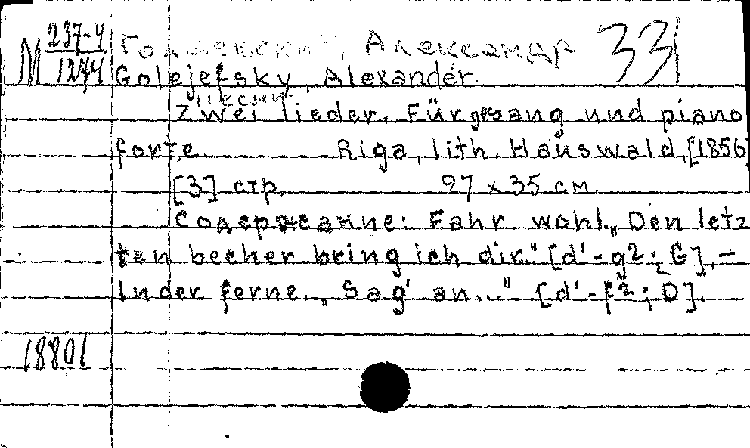 М 237-4 Голяевский, Александр 33
1244 Golejefsky, Alexander.
песни
Zwei lieder. Für gesang und piano
forte. Riga, lith. Hauswald, [1856
[3] стр. 27 x 35 см
Содержание: Fahr wohl. „Den letz
ten becher bring ich dir." [d'-g2; G]. –
In der ferne. „Sag' an..." [d'-f2; D].
18801